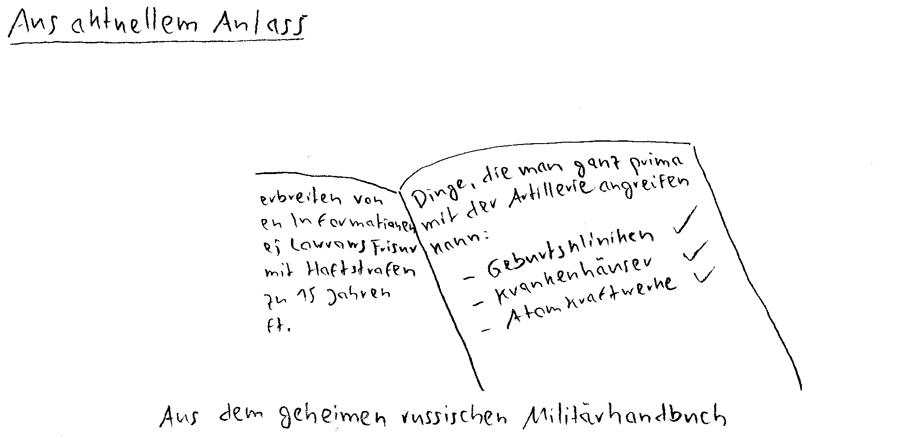 Aus aktuellem Anlass
erbreiten von
en Informationen
ej Lawrows Frisur
mit Haftstrafen
zu 15 Jahren
ft.
Dinge, die man ganz prima
mit der Artillerie angreifen
kann:
- Geburtskliniken ✓
- Krankenhäuser ✓
- Atomkraftwerke ✓
Aus dem geheimen russischen Militärhandbuch